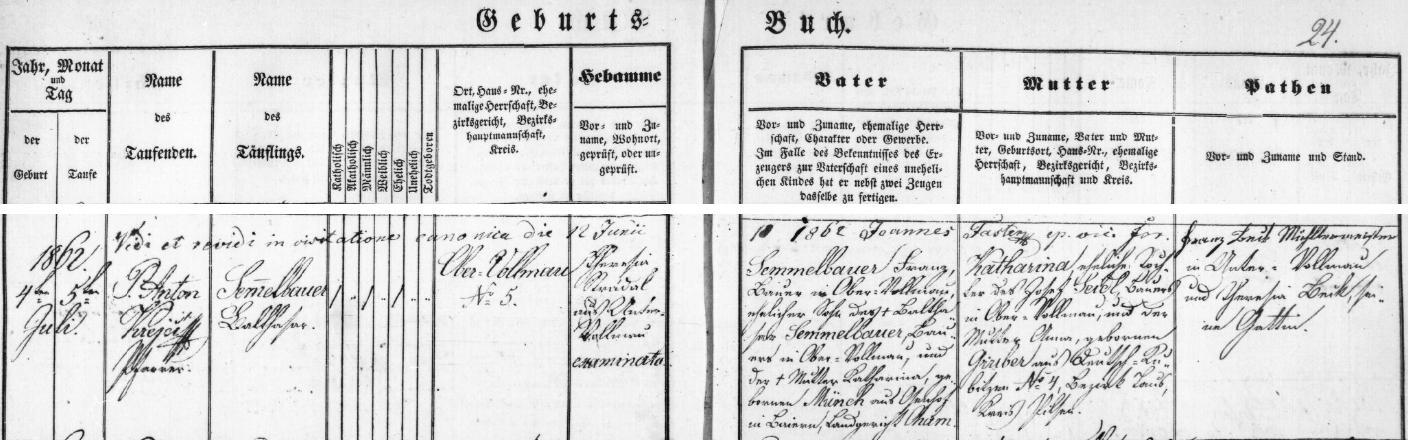 Geburts-
Buch.
24.
Jahr, Monat
und
Tag
der
Geburt
der
Taufe
Name
des
Taufenden.
Name
des
Täuflings.
Katholisch
Akatholisch
Männlich
Weiblich
Ehelich
Unehelich
Todtgeboren
Ort, Haus-Nr., ehe-
malige Herrschaft, Be-
zirksgericht, Bezirks-
hauptmannschaft,
Kreis.
Hebamme
Vor- und Zu-
name, Wohnort,
geprüft, oder un-
geprüft.
Vater
Vor- und Zuname, ehemalige Herr-
schaft, Charakter oder Gewerbe.
Im Falle des Bekenntnisses des Er-
zeugers zur Vaterschaft eines uneheli-
chen Kindes hat er nebst zwei Zeugen
dasselbe zu fertigen.
Mutter
Vor- und Zuname, Vater und Mut-
ter, Geburtsort, Haus-Nr., ehemalige
Herrschaft, Bezirksgericht, Bezirks-
hauptmannschaft und Kreis.
Pathen
Vor- und Zuname und Stand.
Vidi et revidi in visitatione canonica die 12 Junii
1862 Joannes
ep. vic. for.
1862.
4ten 5ten
Juli.
P. Anton
Krejci
Pfarrer.
Semelbauer
Balthasar.
Ober-Vollmau
No 5.
Theresia
aus Unter-
Vollmau
examinata.
Semmelbauer Franz,
Bauer in Ober-Vollmau,
ehelicher Sohn des † Baltha-
sar Semmelbauer, Bau-
ers in Ober-Vollmau, und
der † Mutter Katharina, ge-
bornen Münch aus
in Baiern, Landgericht Cham.
Katharina, eheliche Toch-
ter des Josef Seidl, Bauers
in Ober-Vollmau, und der
Mutter Anna, gebornen
Gruber aus Deutsch-Ku-
bitzen No 4, Bezirk Taus,
Kreis Pilsen.
Franz Beck
in Unter-Vollmau
und Theresia Beck, sei-
ne Gattin.